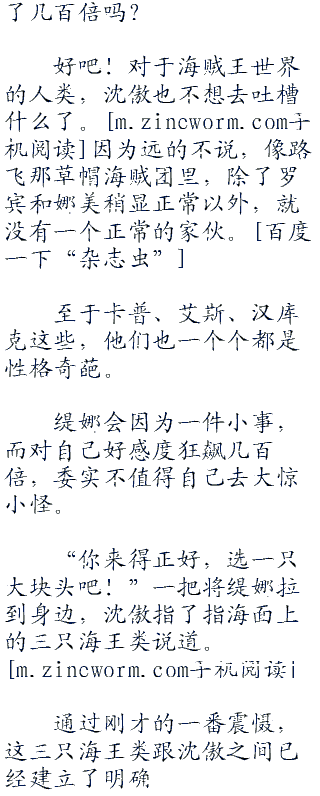 了几百倍吗？
好吧！对于海贼王世界
的人类，沈傲也不想去吐槽
什么了。[m.zincworm.com手
机阅读]因为远的不说，像路
飞那草帽海贼团里，除了罗
宾和娜美稍显正常以外，就
没有一个正常的家伙。[百度
一下“杂志虫”]
至于卡普、艾斯、汉库
克这些，他们也一个个都是
性格奇葩。
缇娜会因为一件小事，
而对自己好感度狂飙几百
倍，委实不值得自己去大惊
小怪。
“你来得正好，选一只
大块头吧！”一把将缇娜拉
到身边，沈傲指了指海面上
的三只海王类说道。
[m.zincworm.com手机阅读i
通过刚才的一番震慑，
这三只海王类跟沈傲之间已
经建立了明确